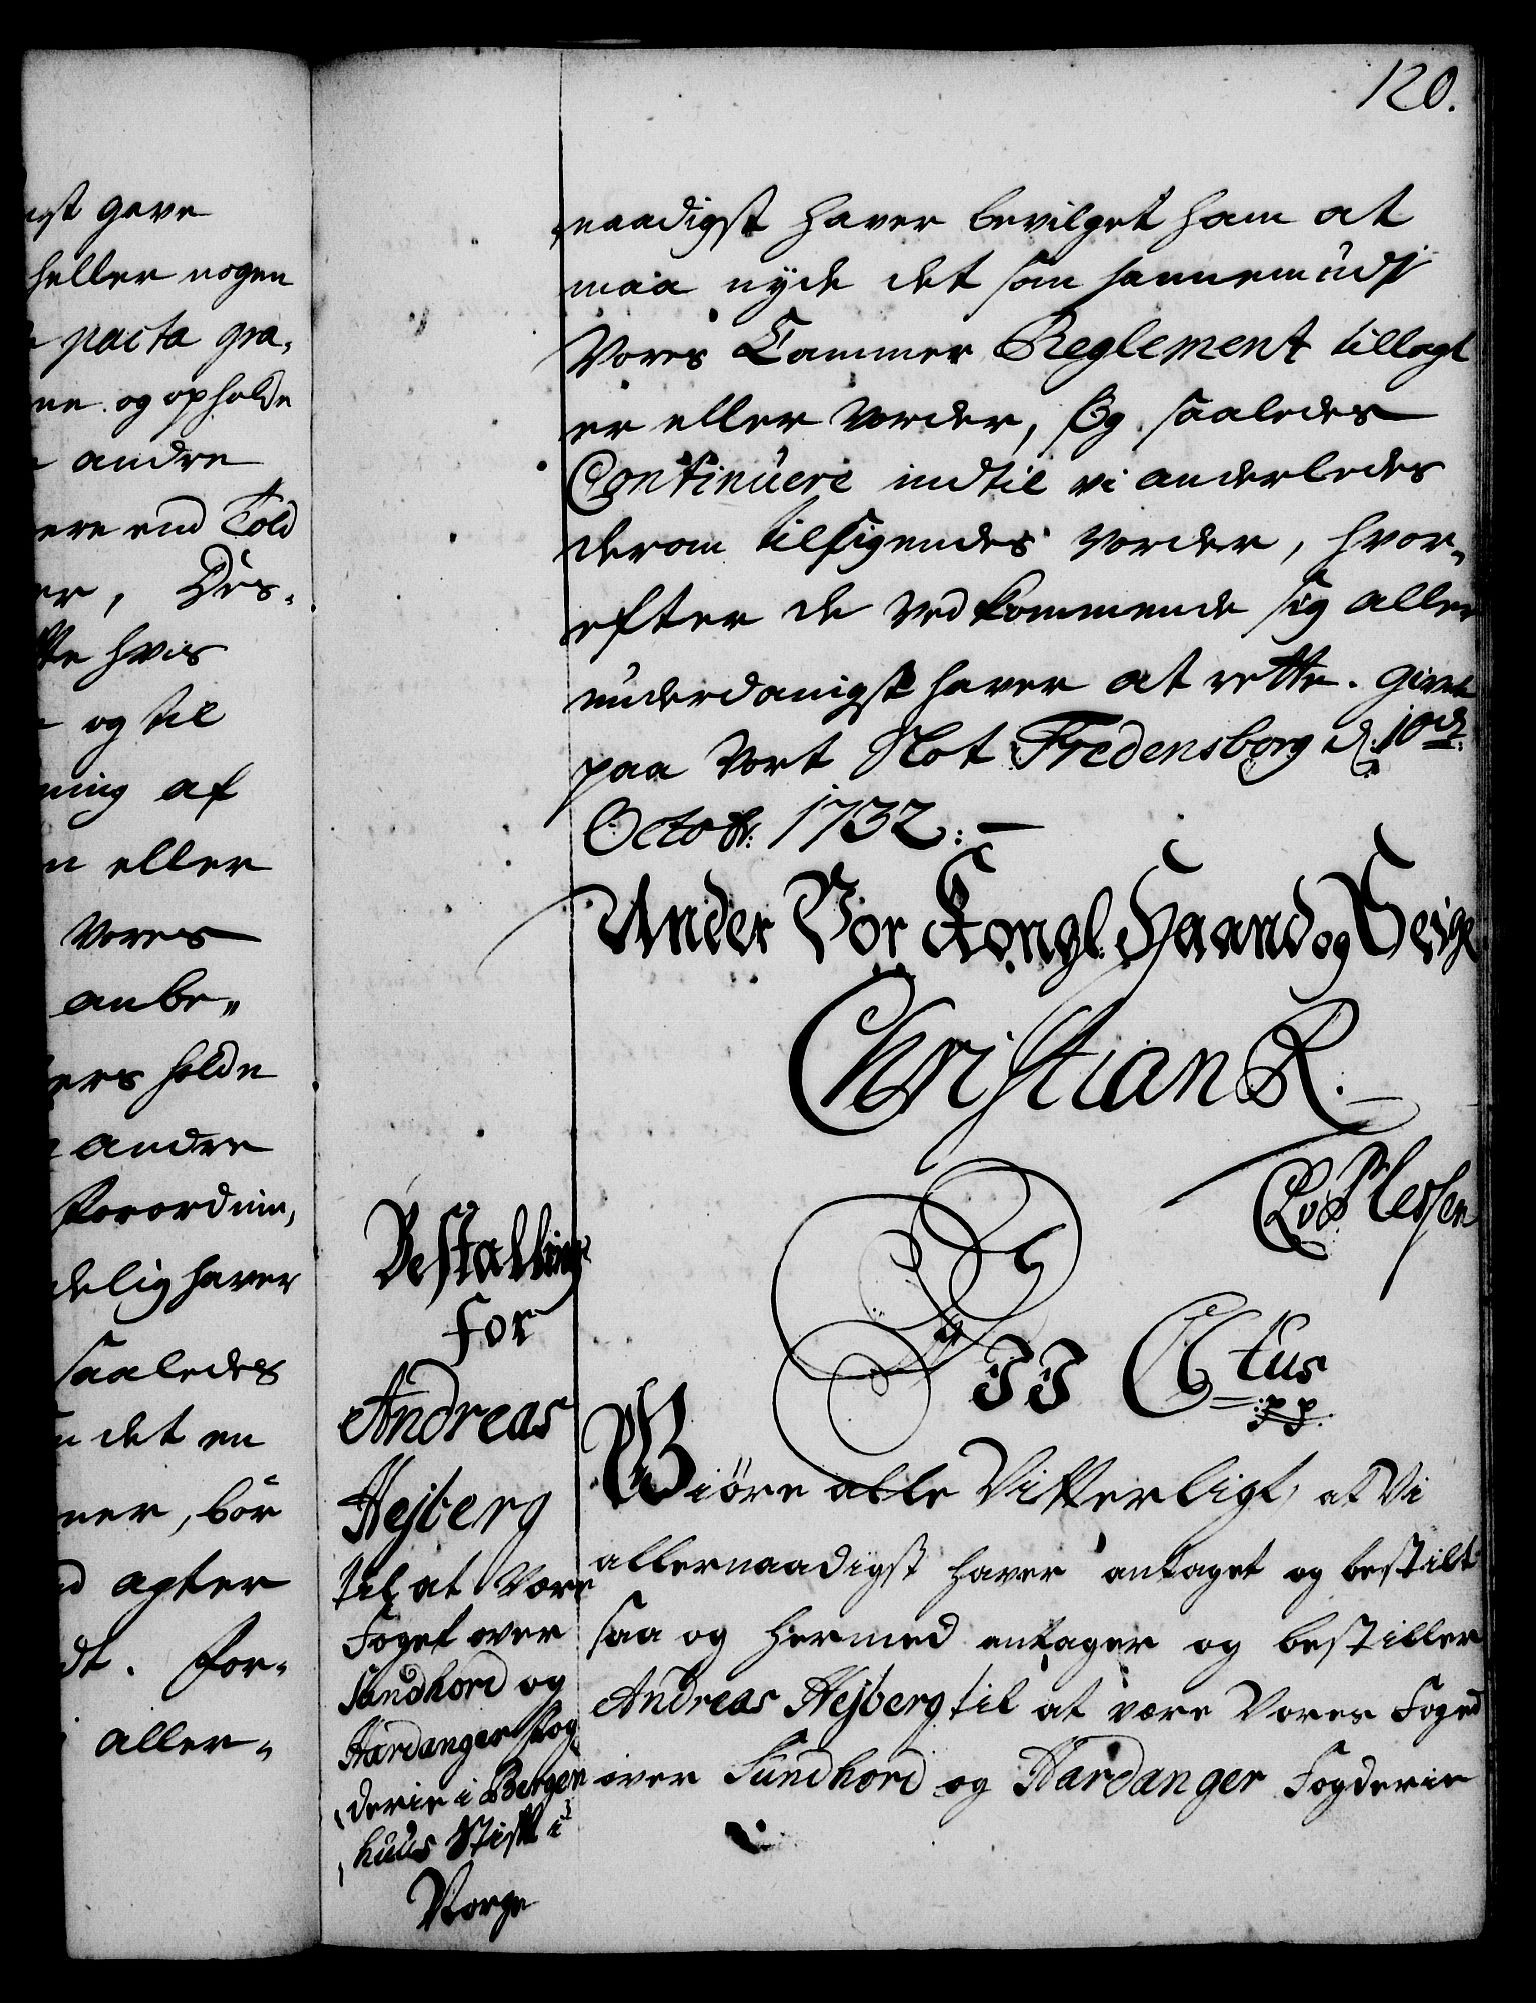 120.
igst gave
heller nogen
pacta gra,
ne og opholde
andre
ere end Told
er, Des-
te hvis
og til
ning af
n eller
Vores
anbe"
ers holde
andre
Forordnin,
delig haver
saaledes
det en
ner, bör
d agter
dt. For-
aller-
naadigst haver bevilget ham at
maa nyde det som hannem udj
Vores Cammer Reglement tillagt
er eller vorder, Og saaledes
Continuere indtil vi anderledes
derom tilsigendes vorder, hvor-
efter de vedkommende sig aller
underdanigst haver at rette. Givet
paa Vort Slot Fredensborg d. 10de
Octobr: 1732:-
Under Vor Kongl. Haand og Seigl
Christian R.
CAvPlessen
Bestalling
for
Andreas
Hejberg
til at være
Foget over
Sundhord og
Hardanger Fog
derie i Bergen
huus Stift i
Norge
VI C 6tus
pp.
Giöre alle Vitterligt, at Vi
allernaadigst haver antaget og bestilt
saa og hermed antager og bestiller
Andreas Hejberg til at være Vores Foged
over Sundhord og Hardanger Fogderie